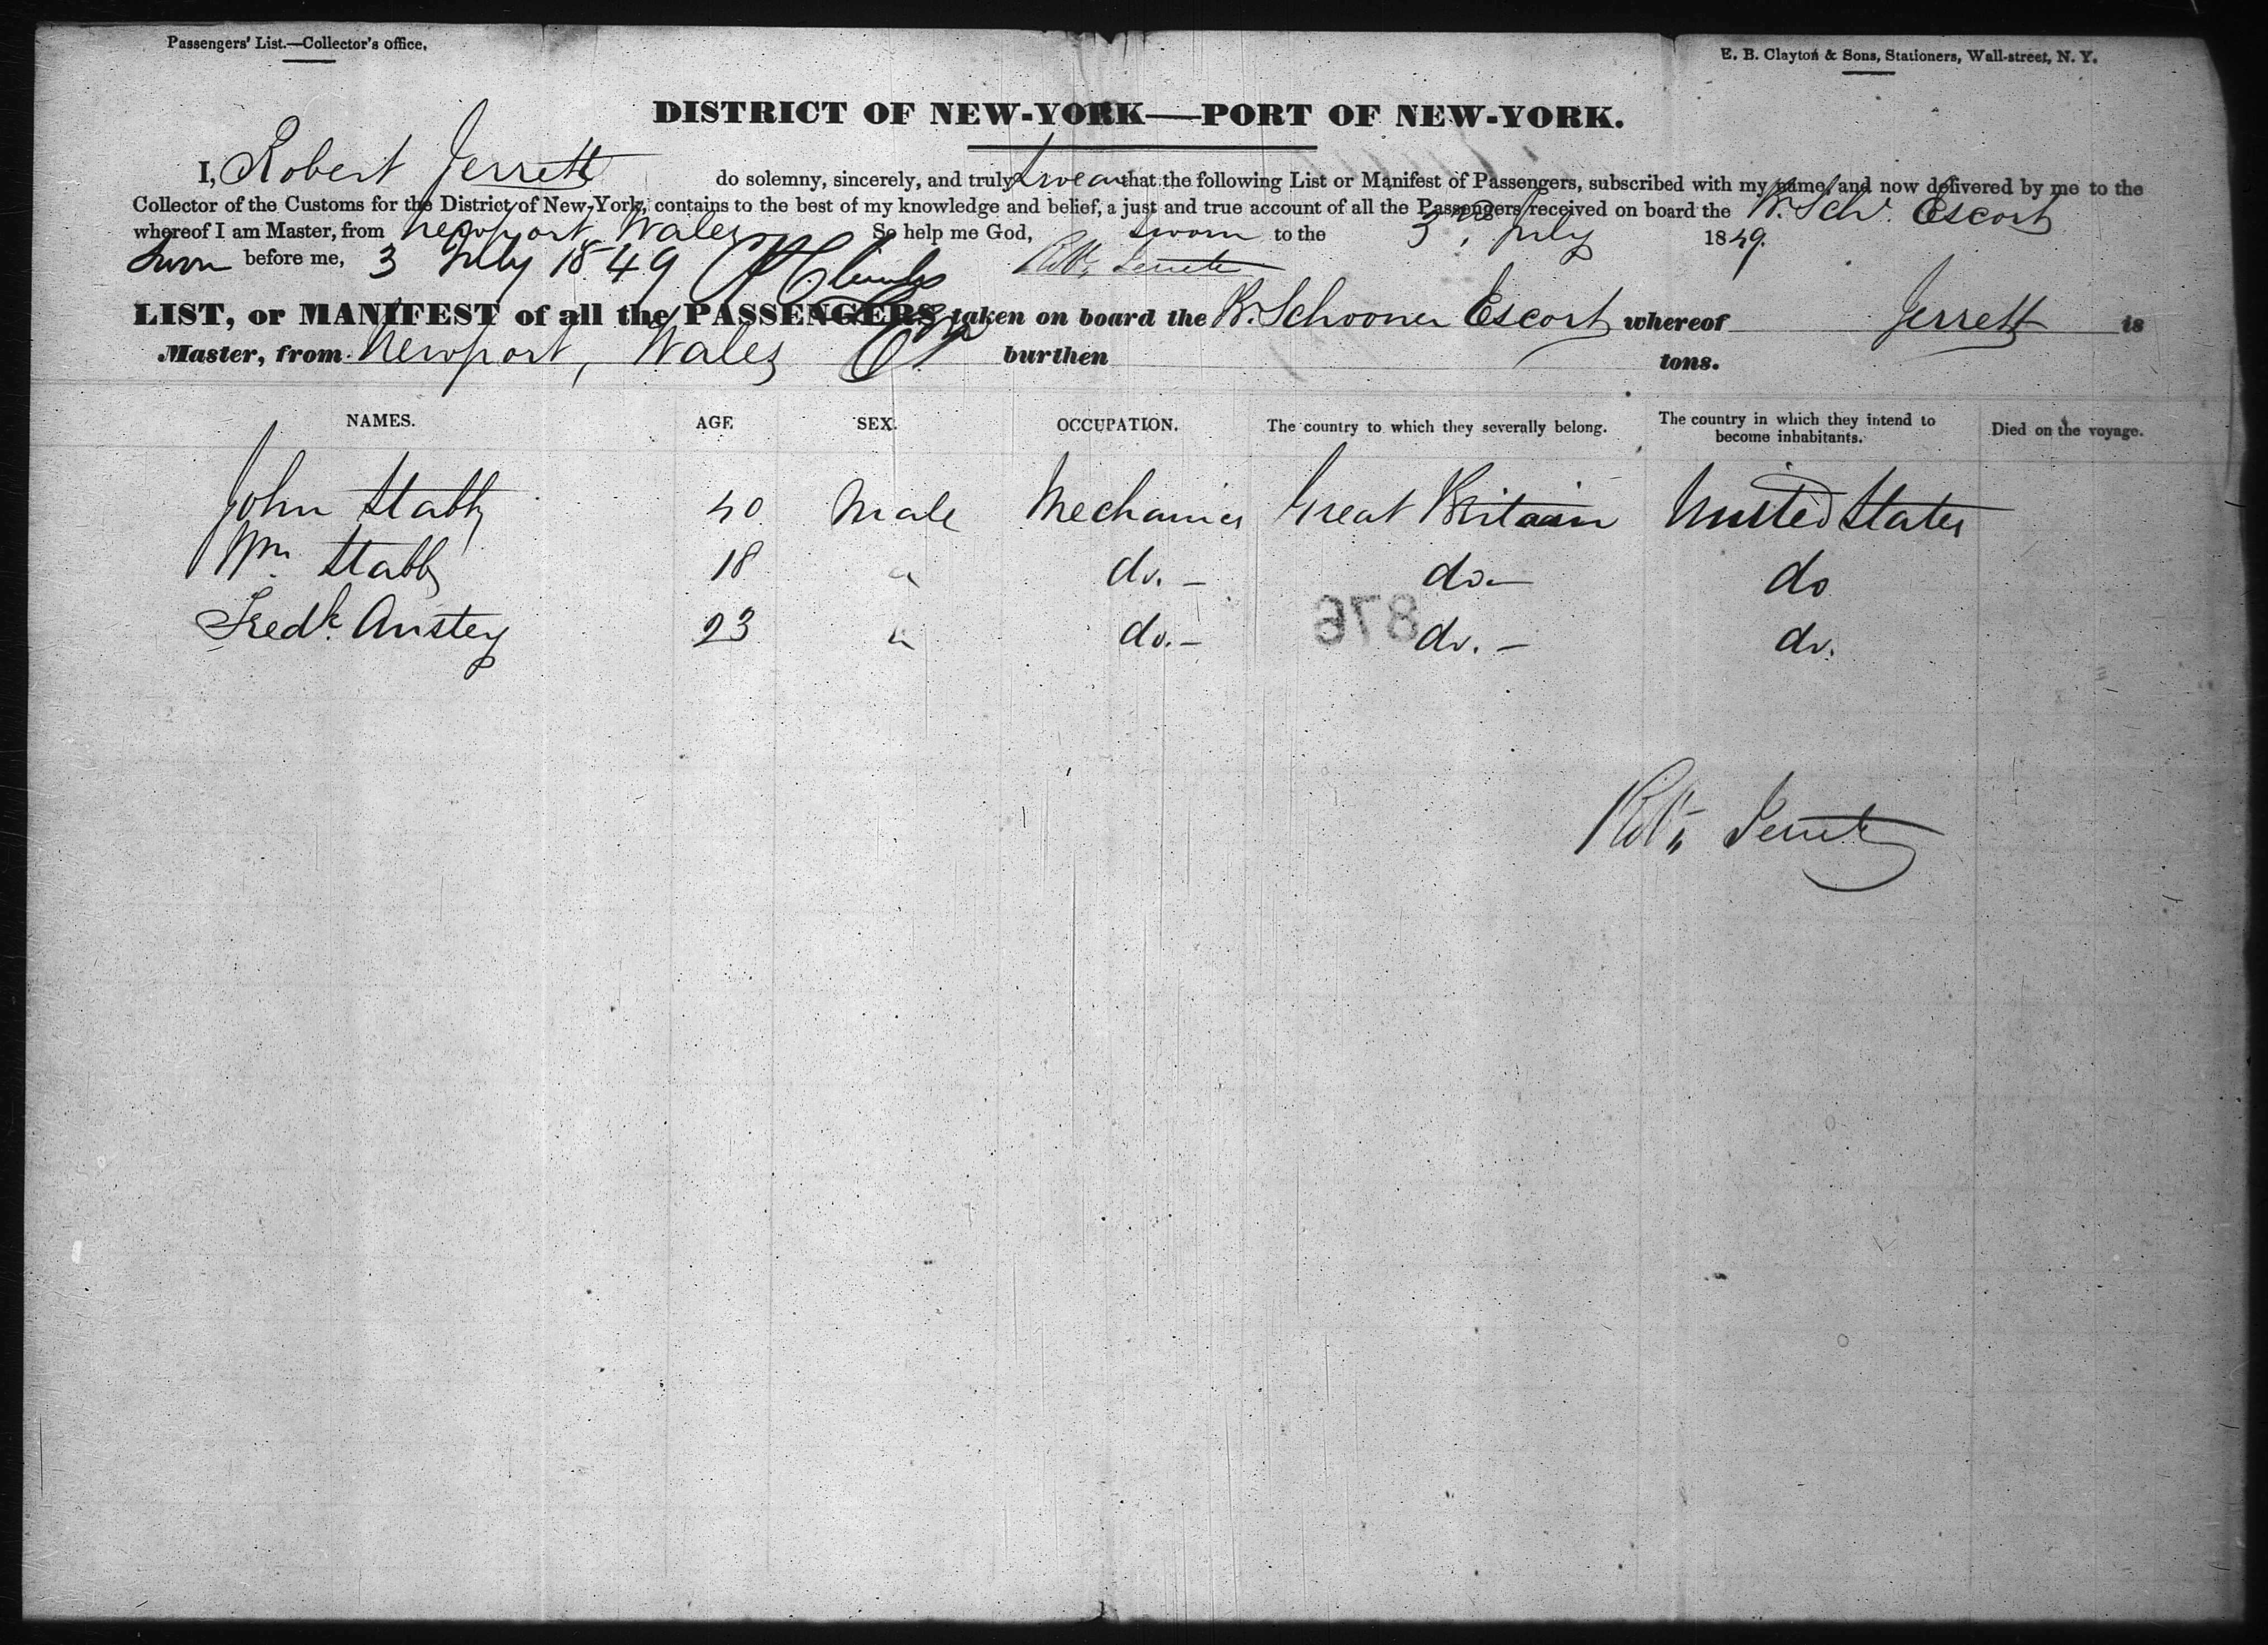 Passengers' List.—Collector's Office.
E. B. Clayton & Sons, Stationers, Wall-street, N. Y.
DISTRICT OF NEW-YORK—PORT OF NEW-YORK.
I, Robert Jerrett do solemny, sincerely, and truly swear that the following List or Manifest of Passengers, subscribed with my name, and now delivered by me to the
Collector of the Customs for the District of New-York, contains to the best of my knowledge and belief, a just and true account of all the Passengers received on board the Br. Schr. Escort
whereof I am Master, from Newport, Wales So help me God, sworn to the 3rd, July 1849.
Sworn before me, 3 July 1849 Robt. Jerrett
LIST, or MANIFEST of all the PASSENGERS taken on board the Br. Schooner Escort whereof Jerrett is
Master, from Newport, Wales burthen tons.
NAMES. AGE SEX. OCCUPATION. The country to which they severally belong. The country in which they intend to become inhabitants. Died on the voyage.
John Stabb 40 Male Mechanics Great Britain United States
Wm. Stabb 18 " do. – do – do
Fredk. Anstey 23 " do. – do. – do.
876
Robt. Jerrett